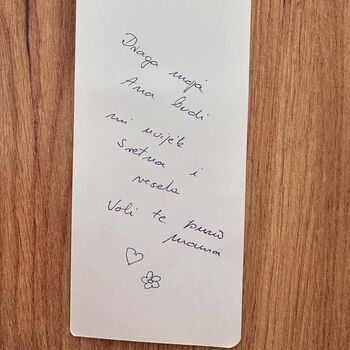 Draga moja
Ana budi
mi uvijek
Sretna i
vesela
Voli te puno
mama